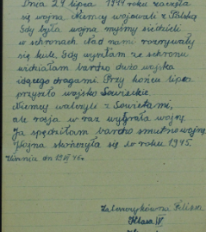 Dnia 24 lipca 1944 roku zaczęła
się wojna. Niemcy wojowali z Polską
Gdy była wojna myśmy siedzieli
w schronach. Nad nami rozrywały
się kule. Gdy wyszłam ze schronu
widziałam bardzo dużo wojska
idącego drogami. Przy końcu lipca
przyszło wojsko Sowieckie.
Niemcy walczyli z Sowietami,
ale rosja w raz wygrała wojnę.
Ja spędziłam bardzo smutno wojnę.
Wojna skończyła się w roku 1945.
dn
Lilian
Klasa IV